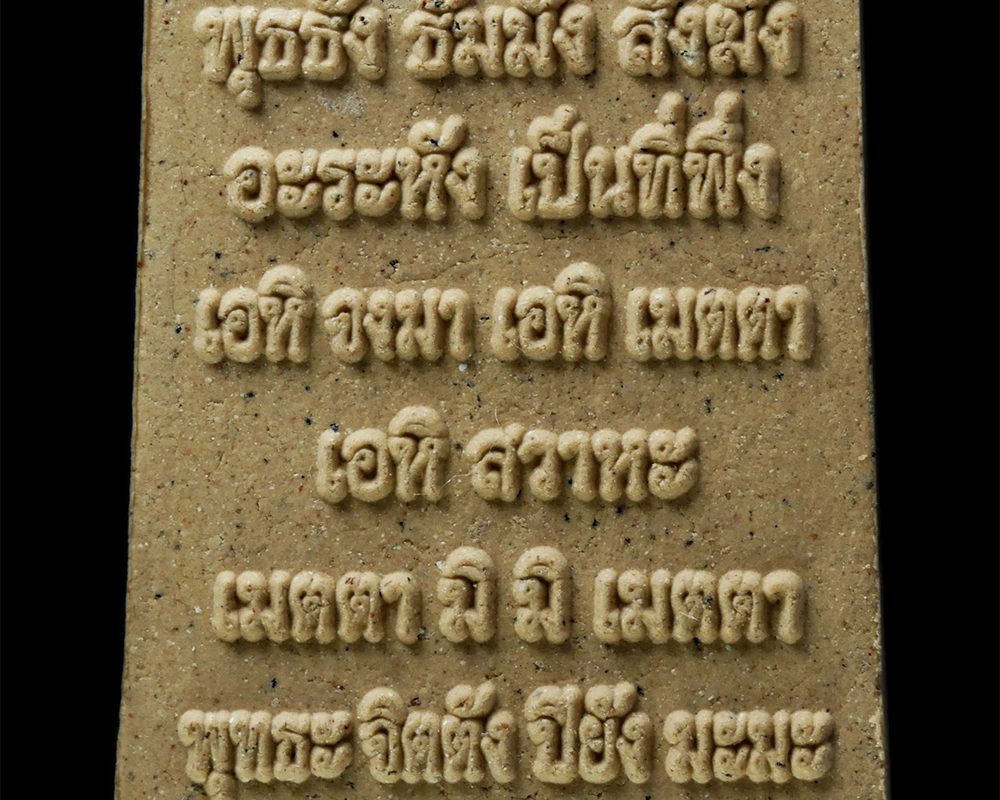 พุธธัง ธัมมัง สังฆัง
อะระหัง เป็นที่พึ่ง
เอหิ จงมา เอหิ เมตตา
เอหิ สวาหะ
เมตตา ปิ ปิ เมตตา
พุทธะ จิตตัง ปิยัง มะมะ